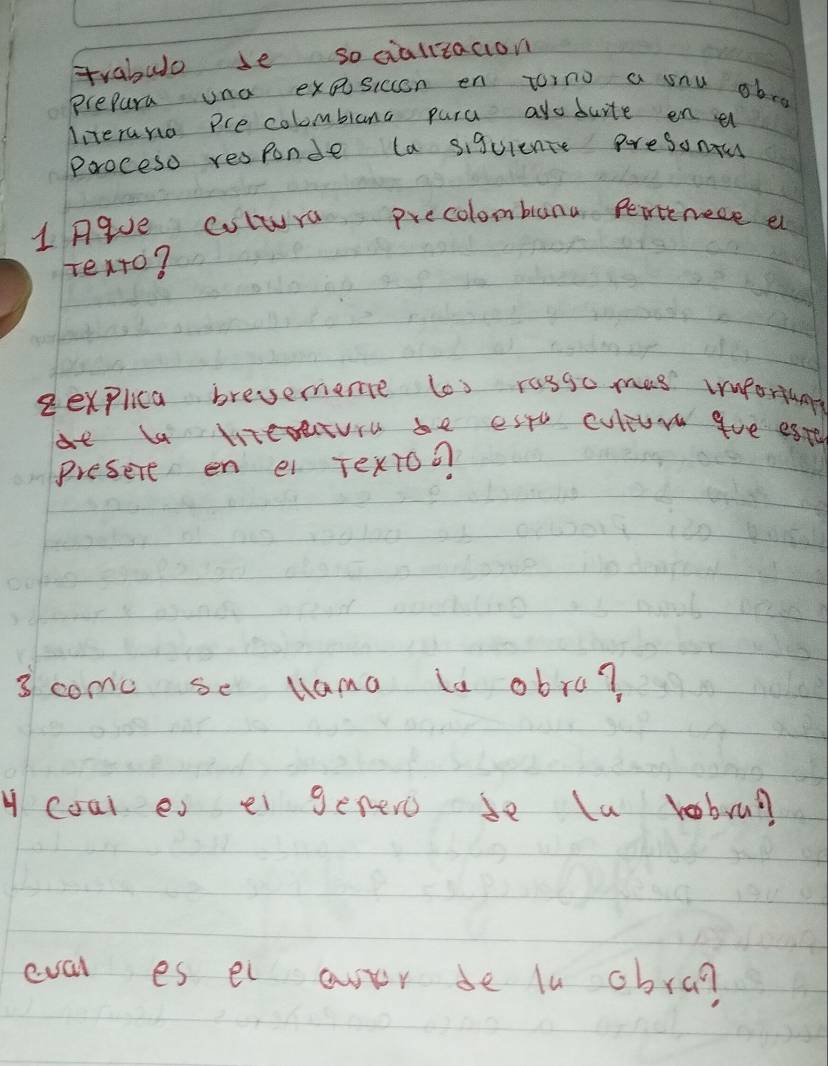 trabulo de socializacion
Prepara una exposiccion en torno a unu obra
literaria Precolombiana para ayudarte en el
Pooceso responde la siguiente Presuntas
1 Aque cultura precolombiana Pertenece el
Texto?
2 explica brevemente los rasgo mas importante
de la literatura de esta cultura que este
Presete en el Texto?
3 como se llama la obra?
4 coal es el genero de la hobra?
cual es el autor de la obra?